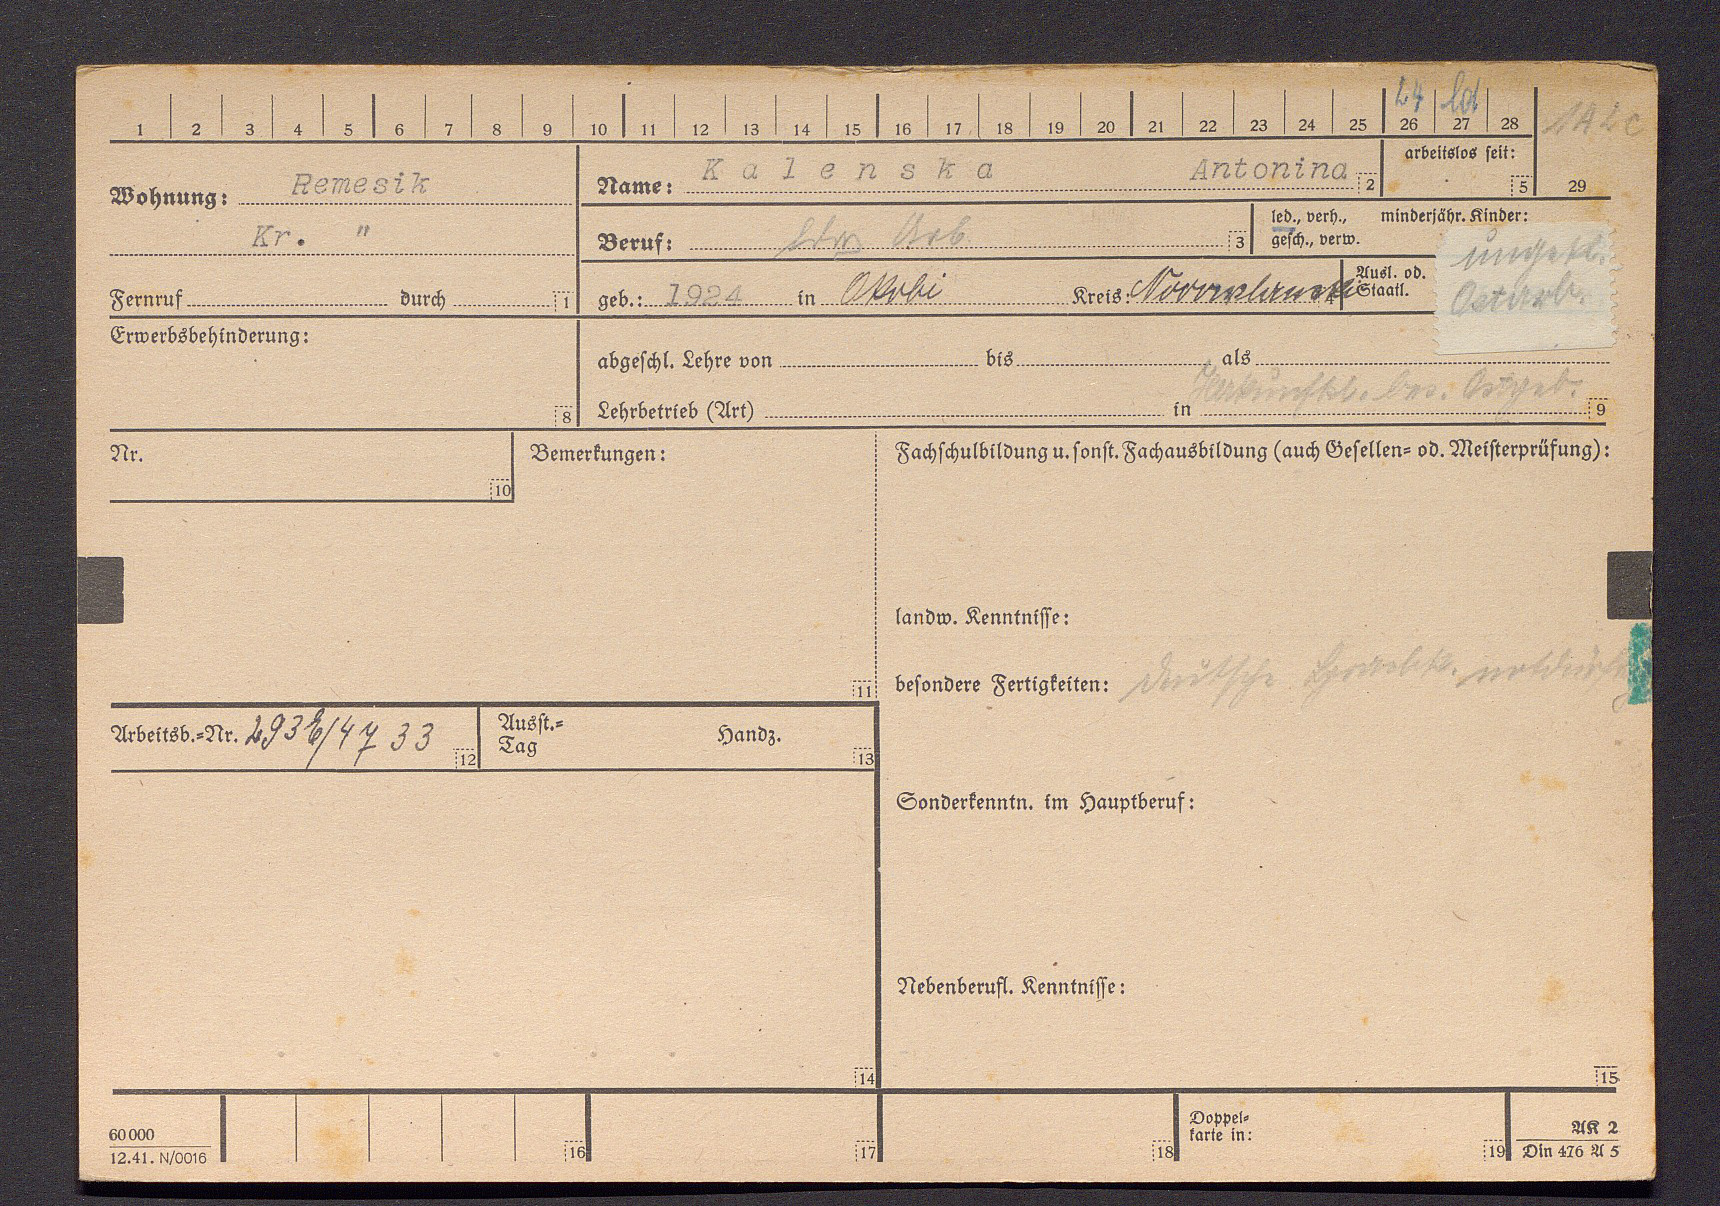 24 ld
1 2 3 4 5 6 7 8 9 10 11 12 13 14 15 16 17 18 19 20 21 22 23 24 25 26 27 28
arbeitslos seit:
5 29
Wohnung: Remesik
Kr. "
Fernruf durch 1
Name: Kalenska Antonina 2
Beruf: Arb. 3
led., verh., minderjähr. Kinder:
gesch., verw.
geb.: 1924 in Kreis:
Ausl. od.
Staatl.
ungekl.
Ostarb.
Erwerbsbehinderung:
8
abgeschl. Lehre von bis als
Lehrbetrieb (Art) in 9
Nr.
10
Bemerkungen:
11
Fachschulbildung u. sonst. Fachausbildung (auch Gesellen= od. Meisterprüfung):
landw. Kenntnisse:
besondere Fertigkeiten: deutsche
Arbeitsb.=Nr. 12
Ausst.=
Tag
Handz.
13
Sonderkenntn. im Hauptberuf:
Nebenberufl. Kenntnisse:
14
15
60 000
12.41. N/0016
16 17 18
Doppel=
karte in:
19
AK 2
Din 476 A 5